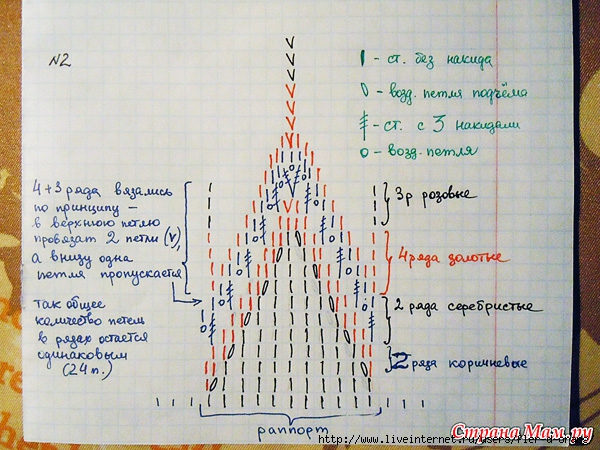 №2
- ст. без накида
- возд. петля подъёма
- ст. с 3 накидами
- возд. петля
4+3 ряда вязались
по принципу -
в верхнюю петлю
провязат 2 петли (V),
а внизу одна
петля пропускается
так общее
количество петель
в рядах остается
одинаковым
(24 п.)
3р розовые
4 ряда золотые
2 ряда серебристые
2 ряда коричневые
раппорт
Страна Мам.ру